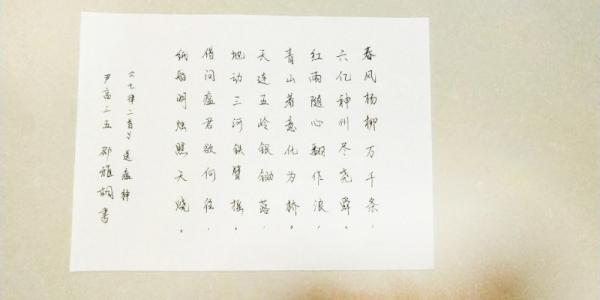 春风杨柳万千条，
六亿神州尽尧舜。
红雨随心翻作浪，
青山着意化为桥。
天连五岭银锄落，
地动三河铁臂摇。
借问瘟君欲何往，
纸船明烛照天烧。
《七律二首》送瘟神
尹高二五 邵雅嗣 书